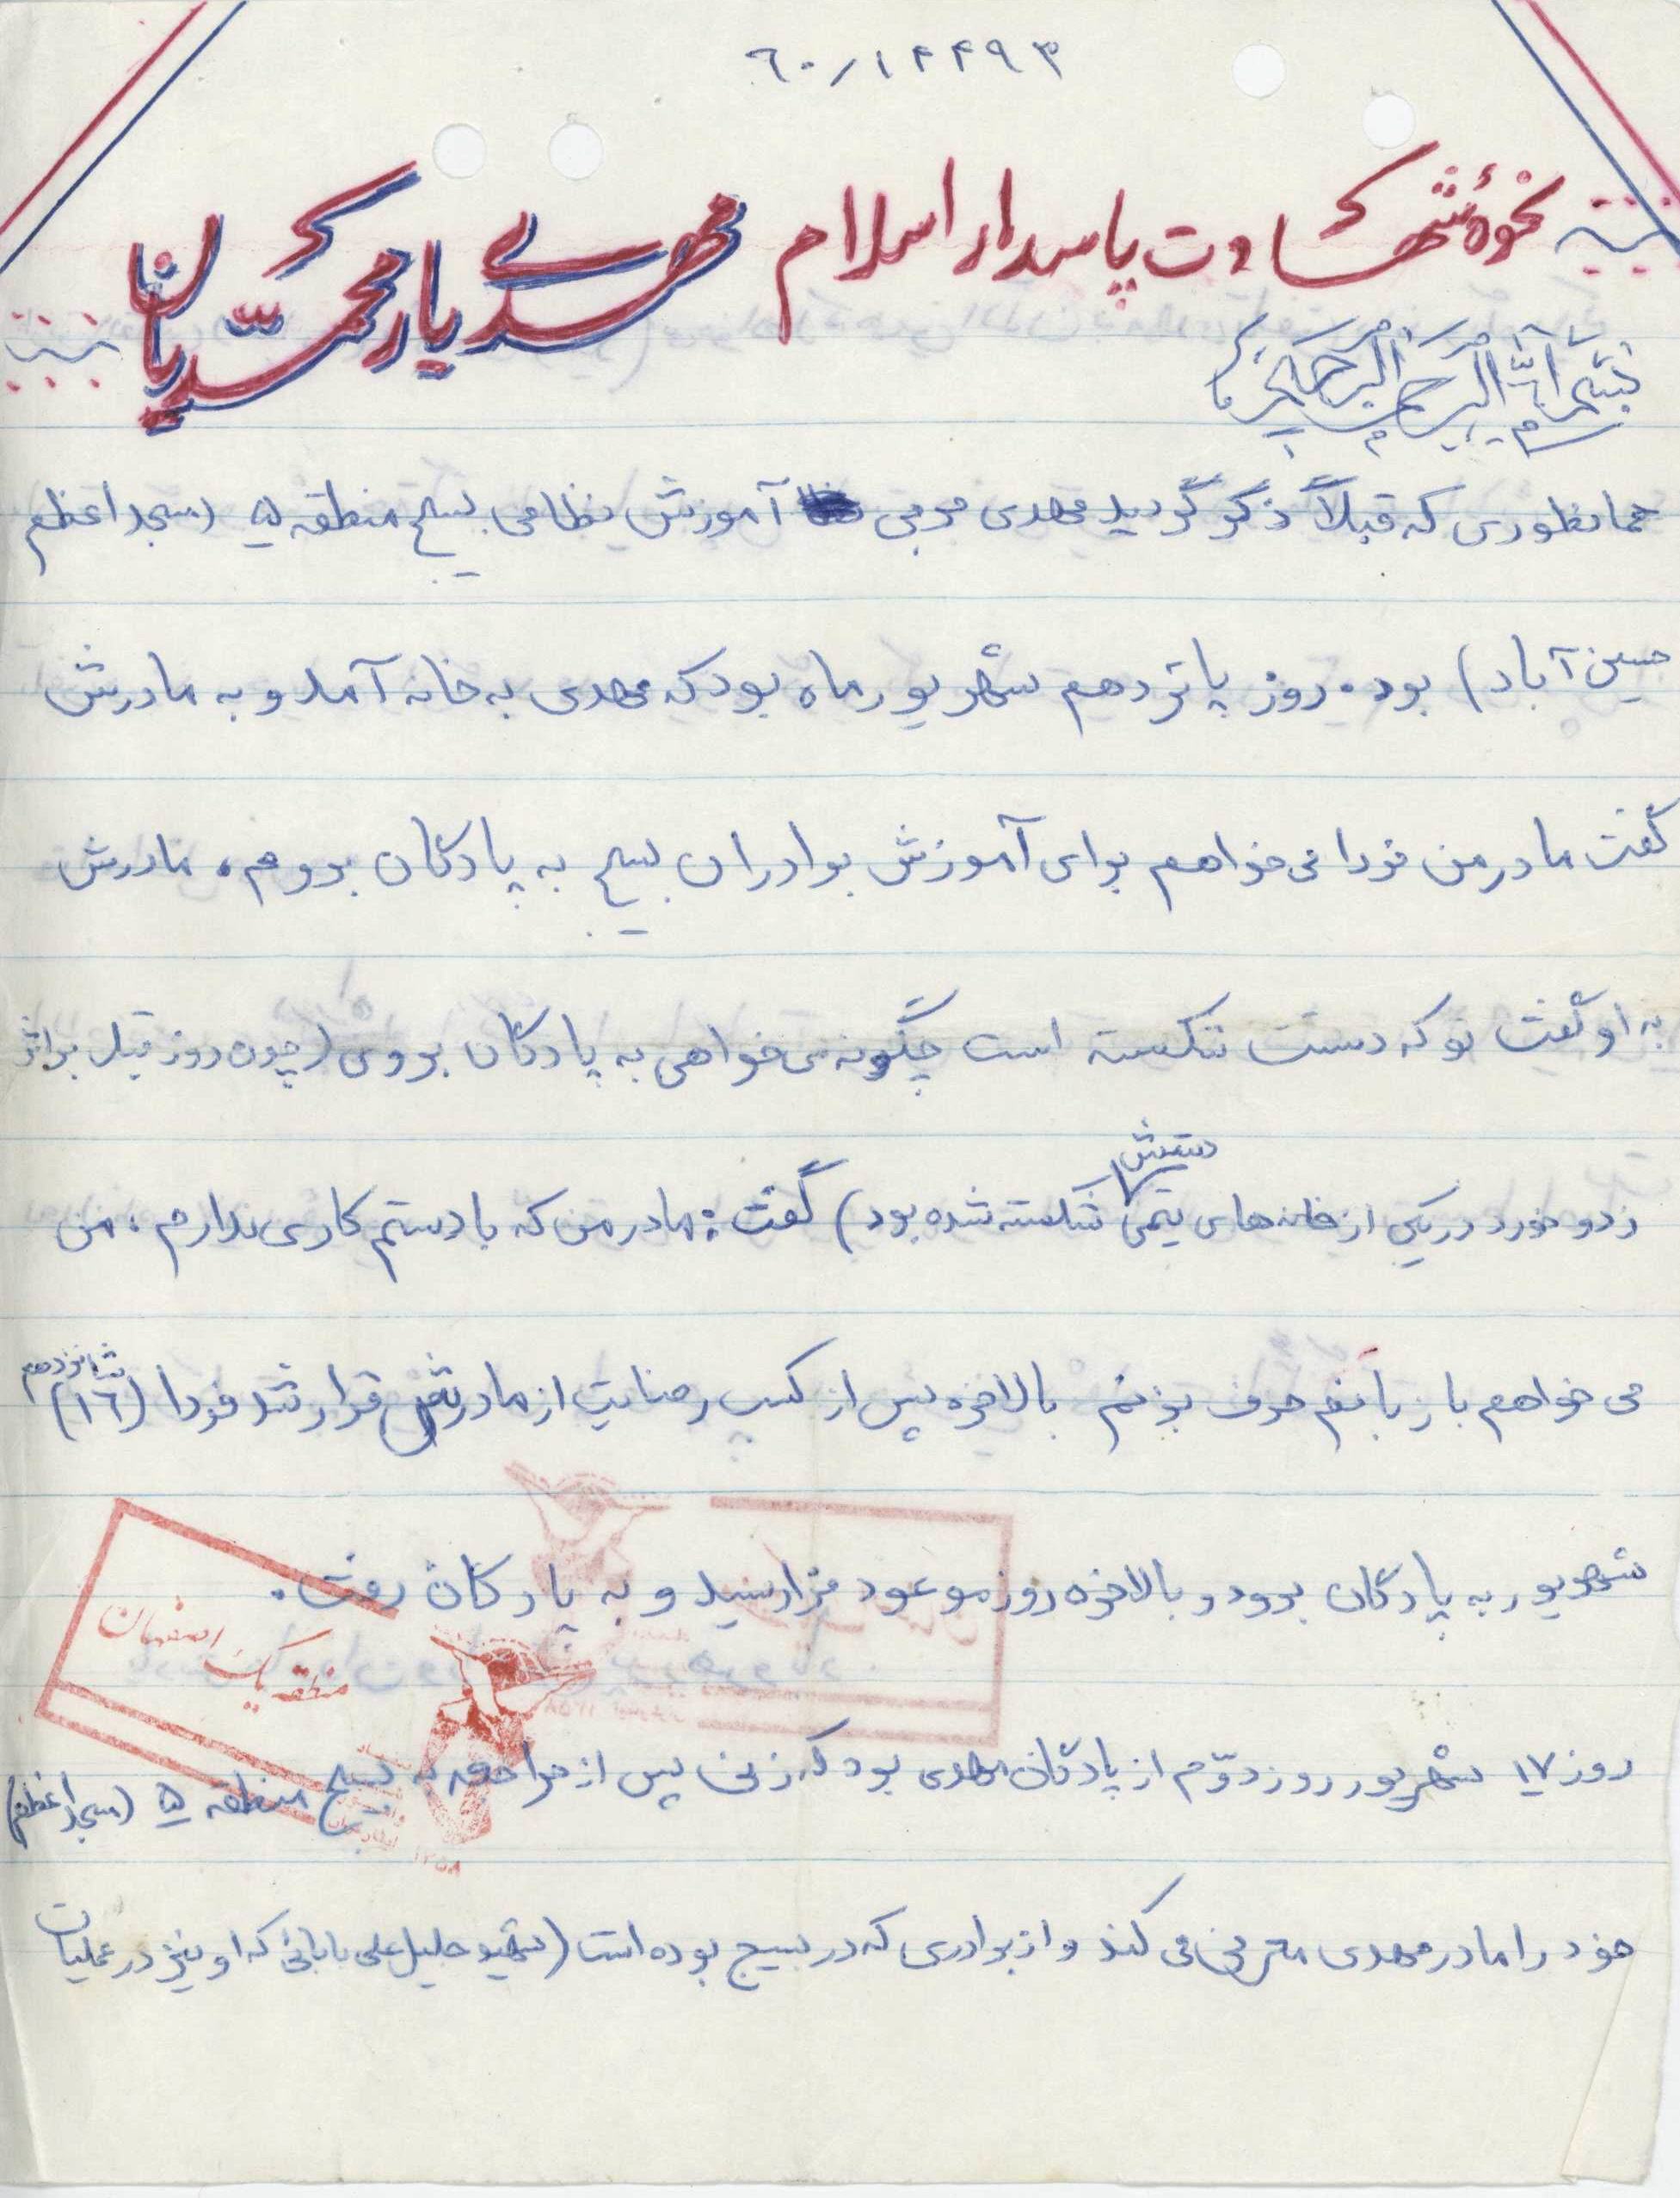 ٦٠/١٤٤٩٣
نحوهٔ شهادت پاسدار اسلام مهدی یارمحمّدیان
بسم اللّه الرحمن الرحیم
همانطوری که قبلاً ذکر گردید مهدی مربی آموزش نظامی بسیج منطقه ۵ (مسجد اعظم
حسین آباد) بود. روز پانزدهم شهریور ماه بود که مهدی به خانه آمد و به مادرش
گفت مادر من فردا می‌خواهم برای آموزش برادران بسیج به پادگان بروم. مادرش
به او گفت تو که دستت شکسته است چگونه می‌خواهی به پادگان بروی (چون روز قبل بر اثر
زد و خورد در یکی از خانه‌های تیمی دستش شکسته شده بود) گفت: مادر من که با دستم کاری ندارم، من
می خواهم با زبانم حرف بزنم بالاخره پس از کسب رضایت از مادرش قرار شد فردا (١٦) شانزدهم
شهریور به پادگان برود و بالاخره روز موعود فرا رسید و به پادگان رفت.
منطقه یک اصفهان
روز ١٧ شهریور روز دوّم از پادگان مهدی بود که زنی پس از مراجعه به بسیج منطقه ۵ (مسجد اعظم)
خود را مادر مهدی معرفی می کند و از برادری که در بسیج بوده است (شهید جلیل علی بابائی که او نیز در عملیات
١٣٥٨